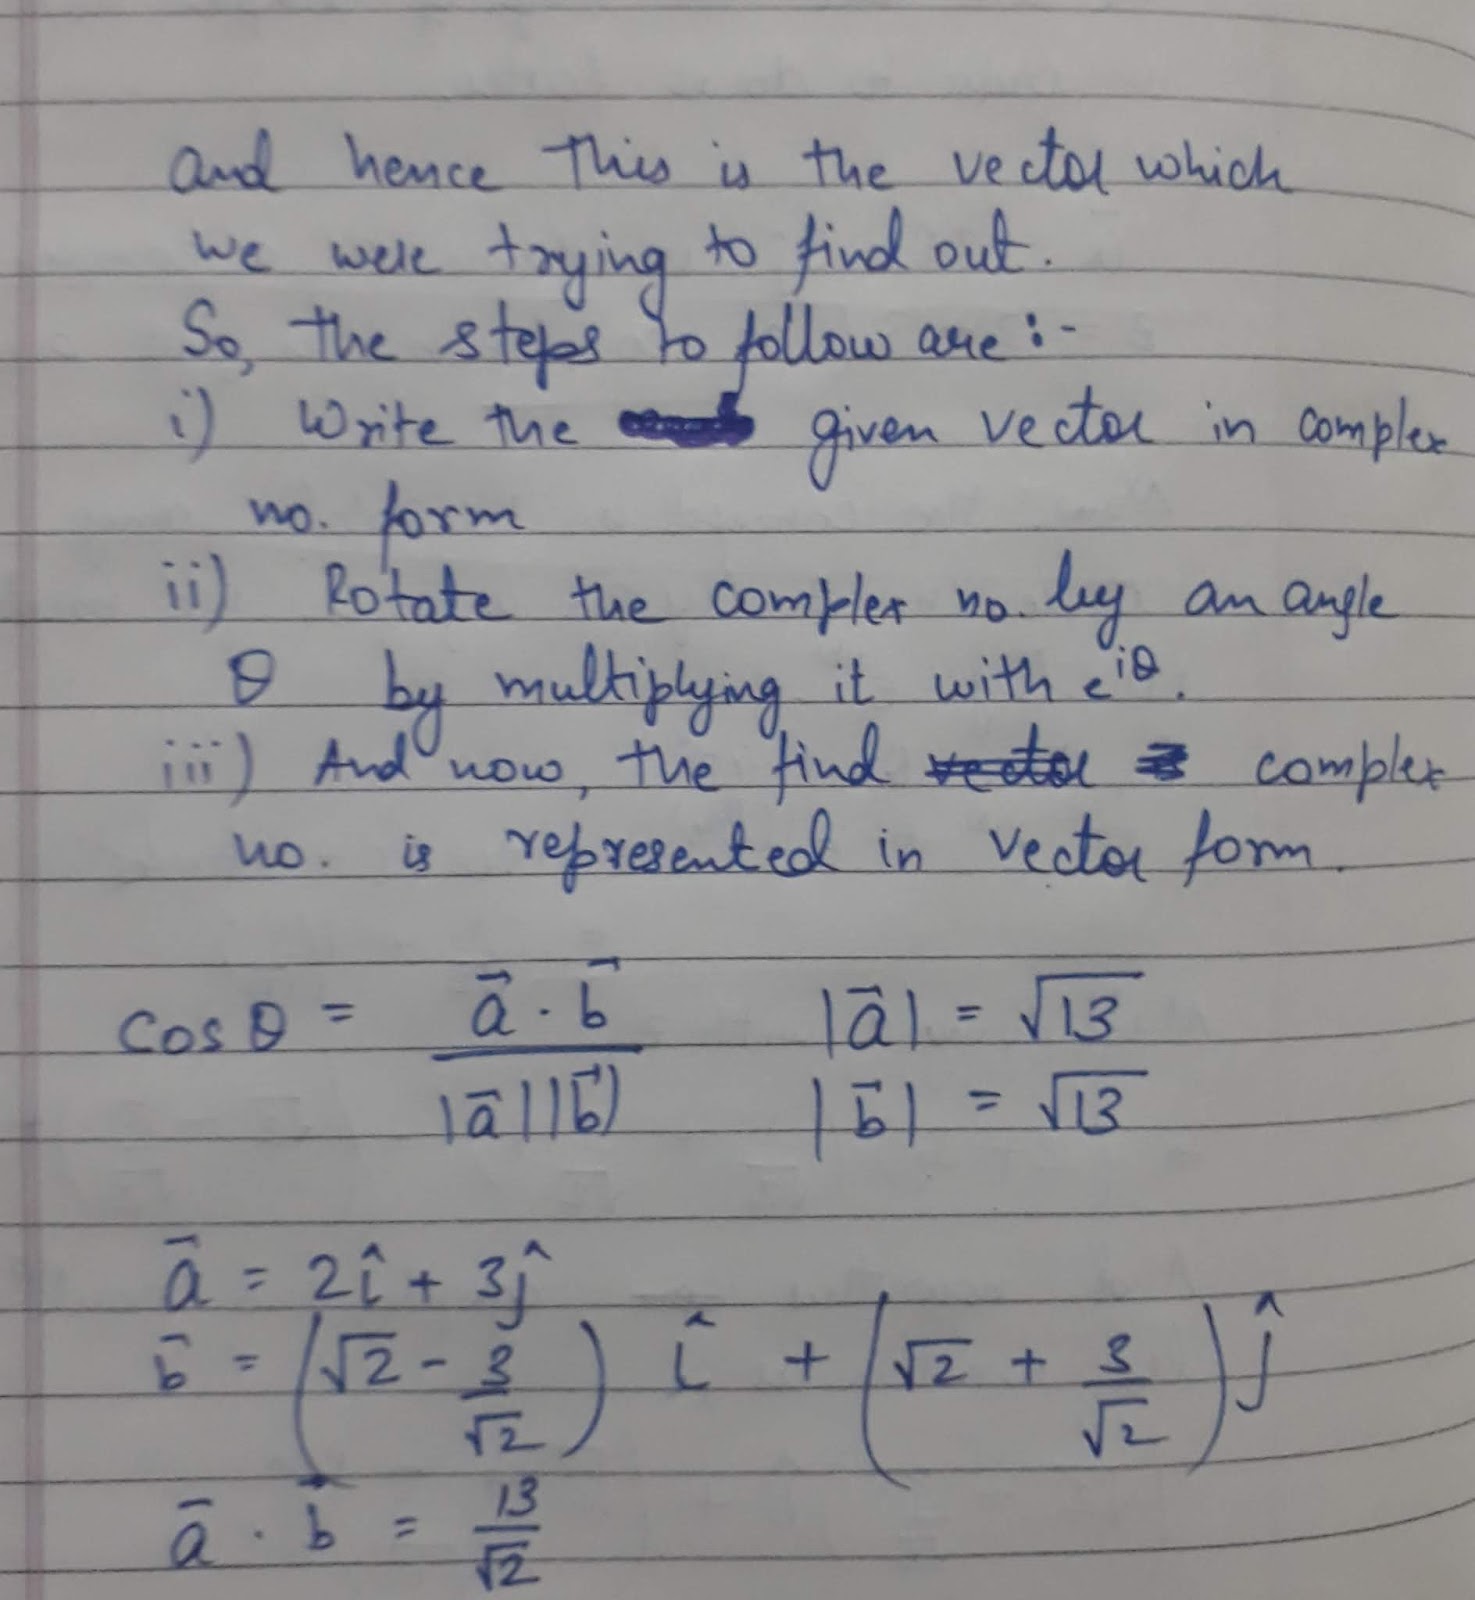 and hence this is the vector which
we were trying to find out.
So, the steps to follow are :-
i) Write the given vector in complex
no. form
ii) Rotate the complex no. by an angle
θ by multiplying it with e^iθ.
iii) And now, the find vector complex
no. is represented in vector form.
cos θ = a⃗ · b⃗ / |a⃗||b⃗| |a⃗| = √13
|b⃗| = √13
a⃗ = 2î + 3ĵ
b⃗ = (√2 - 3/√2) î + (√2 + 3/√2) ĵ
a⃗ · b⃗ = 13/√2